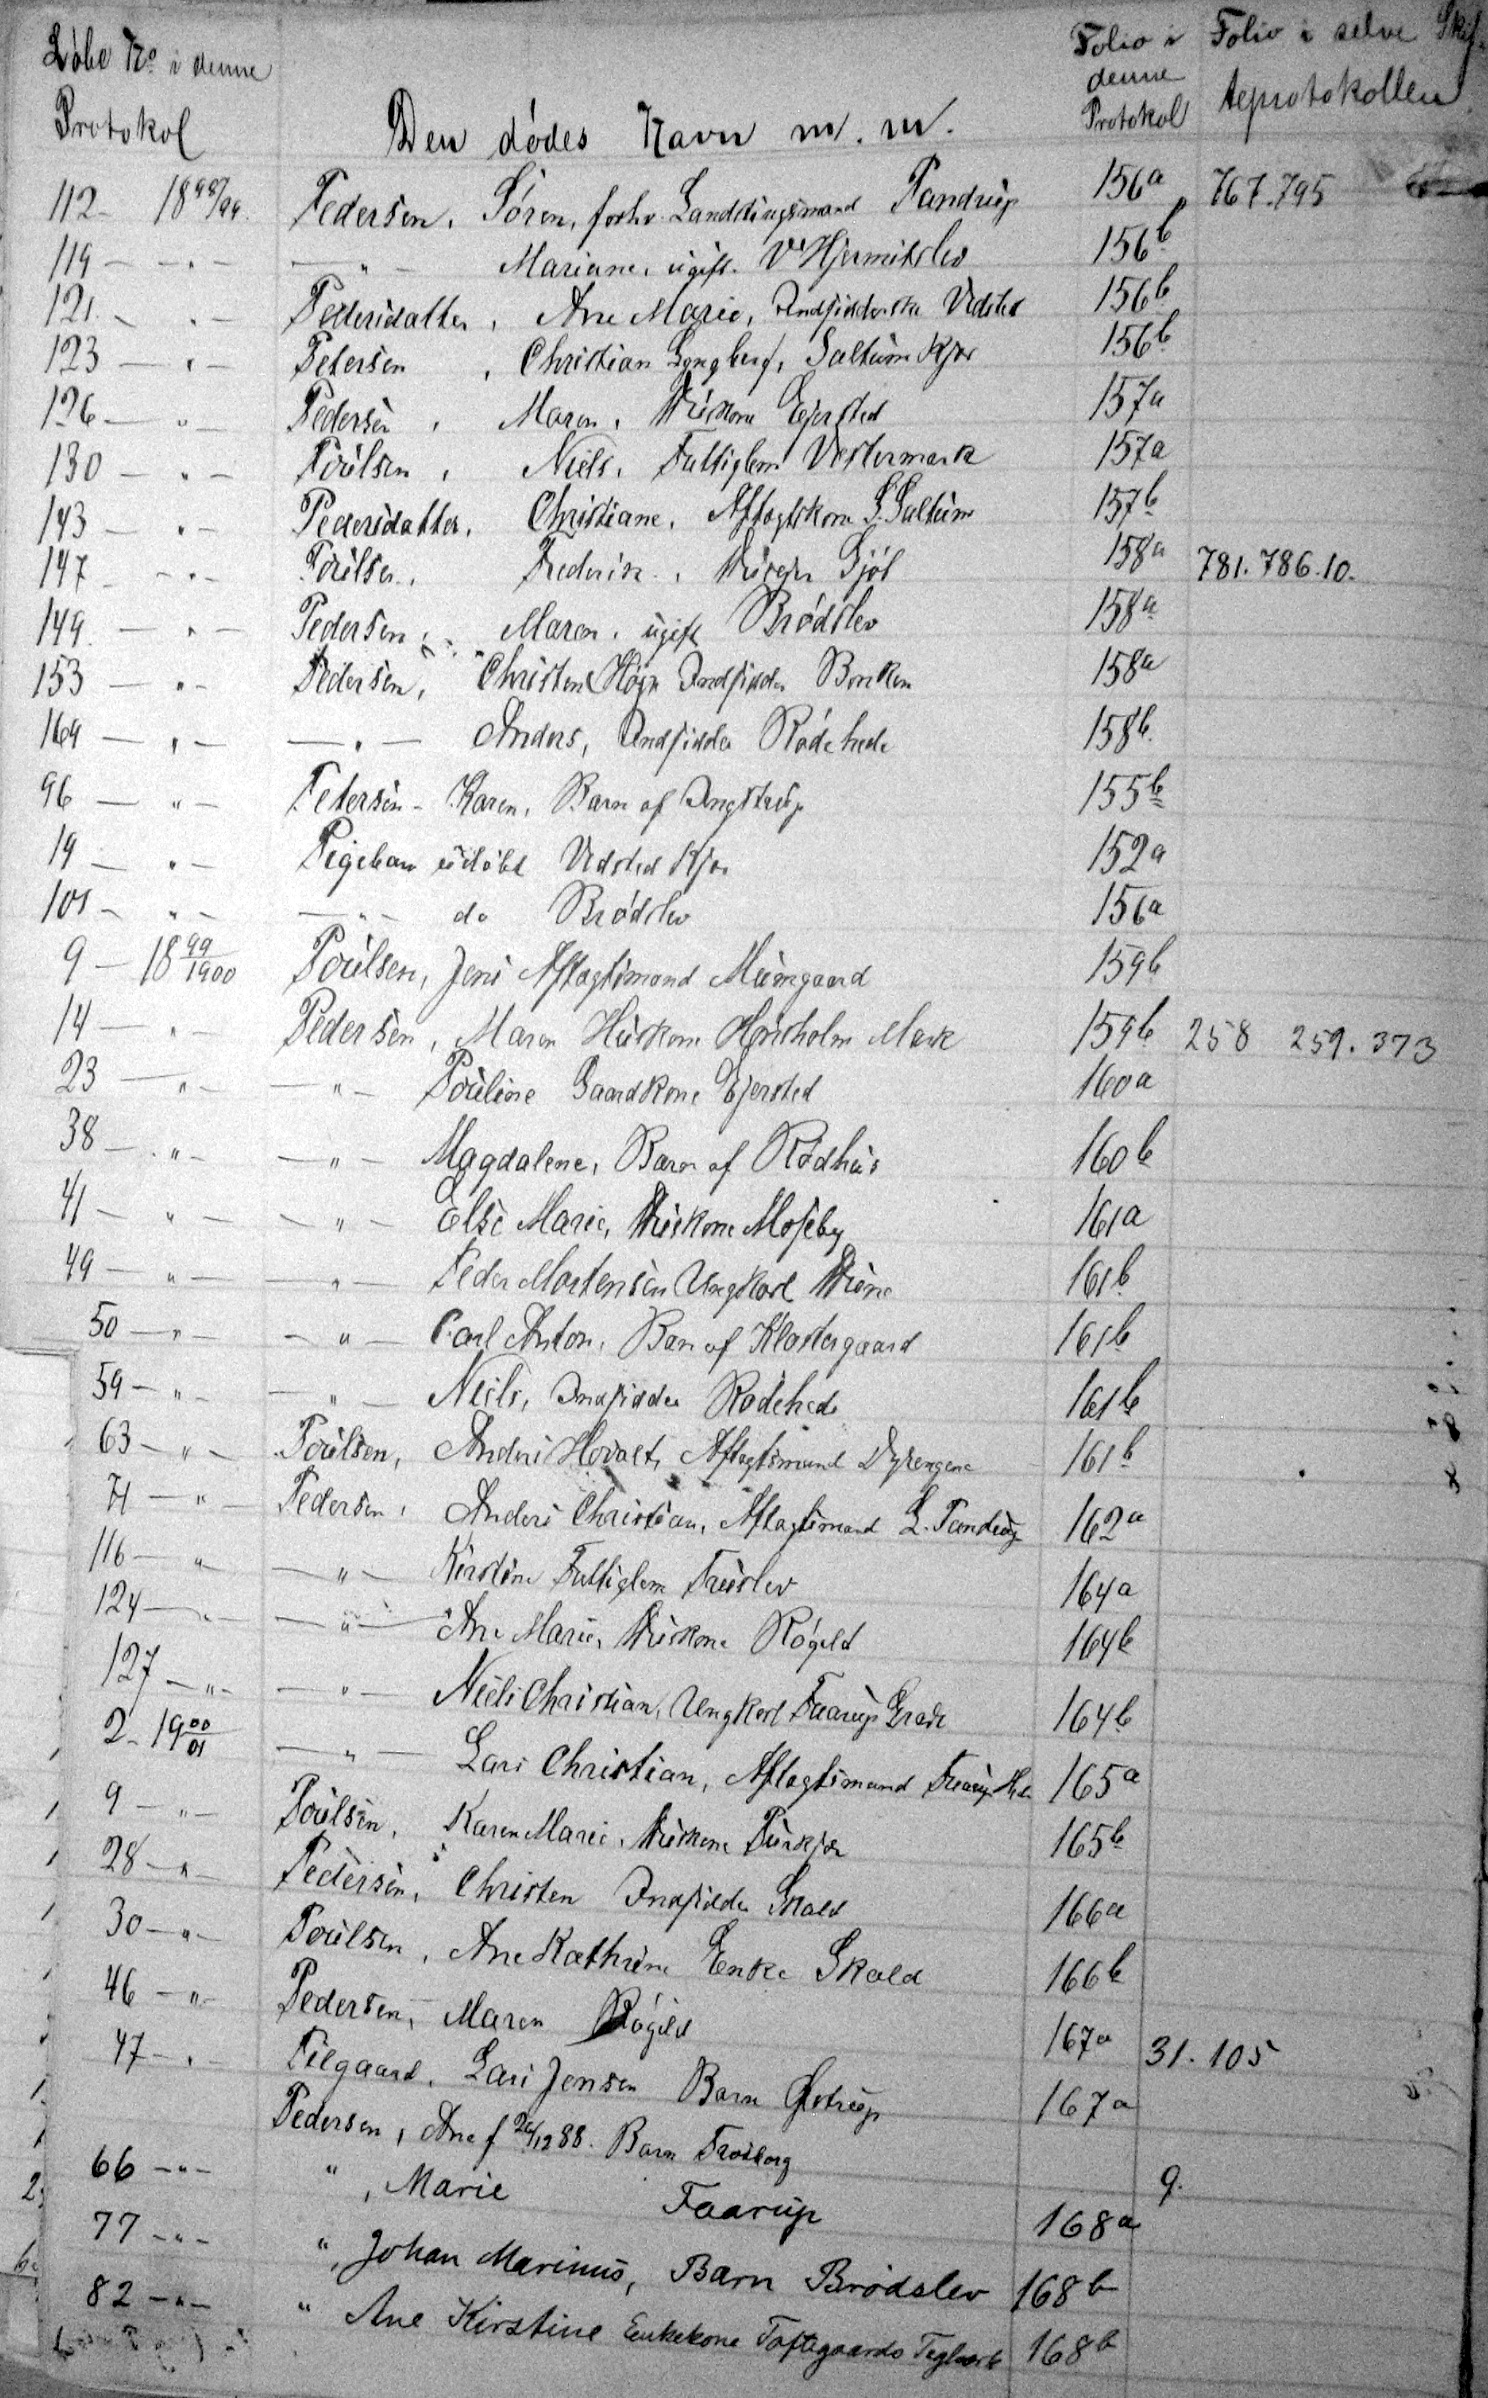 Løbe No i denne Protokol | Den dødes Navn m. m. | Folio i denne Protokol | Folio i selve Skifteprotokollen
112 - 1898/99. Pedersen, Søren, forhv. Landstingsmand Pandrup 156a 767.795
119 - " - - " - Mariane, ugift. V Hjermitslev 156b
121. - " - Pedersdatter, Ane Marie, Indsidderske Vedsted 156b
123 - " - Petersen, Christian Lyngberg, Saltum Kjær 156b
126 - " - Pedersen, Maren, Huskone Ejersted 157a
130 - " - Poulsen, Niels, Fattiglem Vestermark 157a
143 - " - Pedersdatter, Christiane, Aftægtskone S. Saltum 157b
147 - " - Poulsen, Frederik, Husejer Gjøl 158a 781.786.10.
149. - " - Pedersen, Maren, ugift Brødslev 158a
153 - " - Pedersen, Christen Høgh Indsidder Bonken 158a
164 - " - - " - Anders, Indsidder Rødehede 158b.
96 - " - Petersen - Karen, Barn af Ingstrup 155b
19 - " - Pigebarn udøbt Vedsted Kjær 152a
101 - " - - " - do Brødslev 156a
9 - 1899/1900 Poulsen, Jens Aftægtsmand Muengaard 159b
14 - " - Pedersen, Maren Huskone Hunsholm Mark 159b 258 259.373
23 - " - - " - Pouline Gaardkone Ejersted 160a
38 - " - - " - Magdalene, Barn af Rødhus 160b
41 - " - - " - Else Marie, Huskone Moseby 161a
49 - " - - " - Peder Mortensen Ungkarl Hune 161b
50 - " - - " - Carl Anton, Barn af Klostergaard 161b
59 - " - - " - Niels, Indsidder Rødehede 161b
63 - " - Poulsen, Anders Hovalt, Aftægtsmand Dyrengene 161b
71 - " - Pedersen, Anders Christian, Aftægtsmand L. Pandrup 162a
116 - " - - " - Kirstine Fattiglem Truslev 164a
124 - " - - " - Ane Marie, Huskone Røgeld 164b
127 - " - - " - Niels Christian, Ungkarl Faarup Grade 164b
2 - 1900/01 - " - Lars Christian, Aftægtsmand 165a
9 - " - Poulsen, Karen Marie, Huskone Purkjær 165b
28 - " - Pedersen, Christen Indsidder Skald 166a
30 - " - Poulsen, Ane Kathrine Enke Skald 166b
46 - " - Pedersen, Maren Røgild 167a 31.105
47 - " - Pilgaard, Lars Jensen Barn 167a
Pedersen, Ane f 24/12 88. Barn Trosborg 9.
66 - " - ", Marie Faarup 168a
77 - " - ", Johan Marinus, Barn Brødslev 168b
82 - " - " Ane Kirstine Enkekone Toftegaards Teglværk 168b